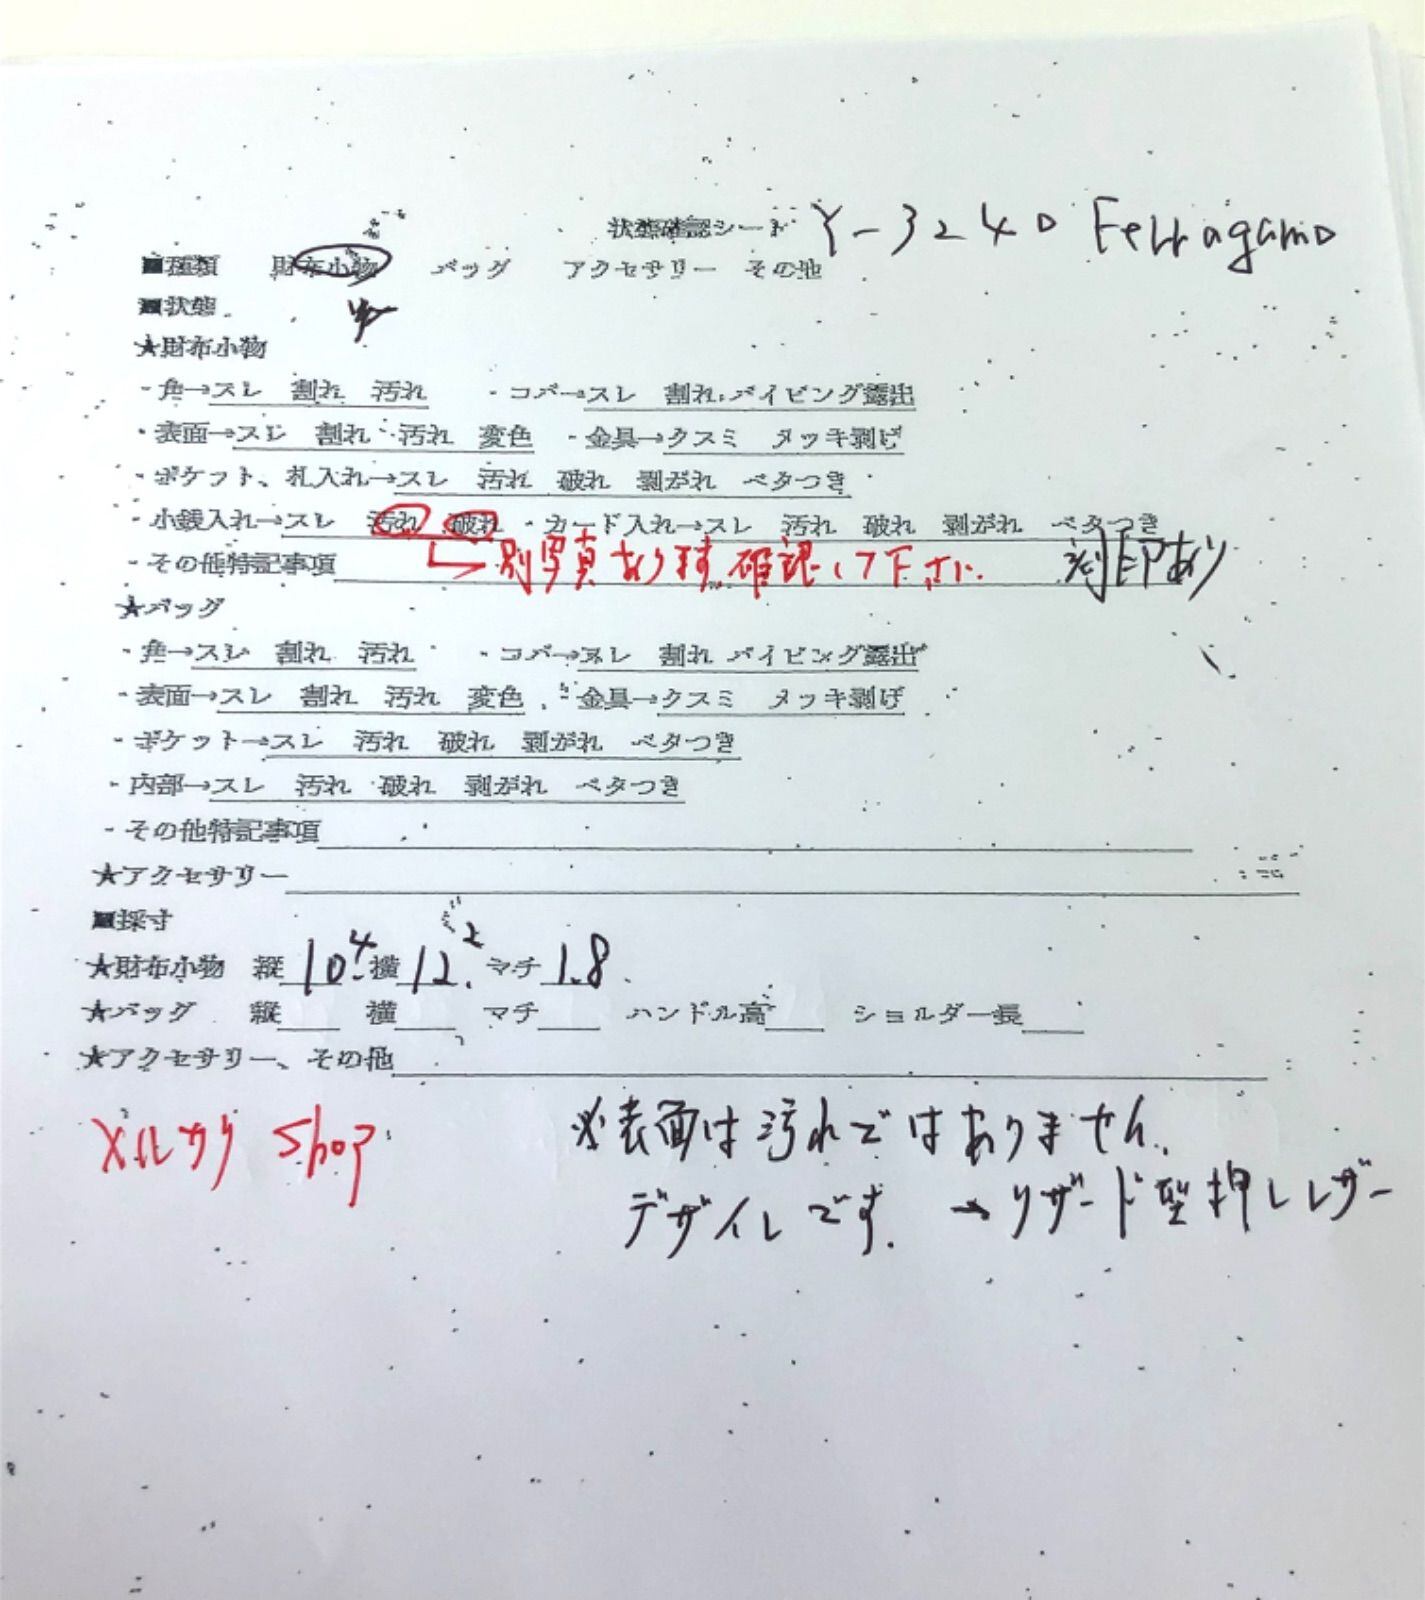 状態確認シート Y-3240 Ferragamo
■種類 財布小物 バッグ アクセサリー その他
■状態
★財布小物
・角→スレ 割れ 汚れ ・コバ→スレ 割れ パイピング露出
・表面→スレ 割れ 汚れ 変色 ・金具→クスミ メッキ剥げ
・ポケット、札入れ→スレ 汚れ 破れ 剥がれ ベタつき
・小銭入れ→スレ 汚れ 破れ ・カード入れ→スレ 汚れ 破れ 剥がれ ベタつき
・その他特記事項 別写真あります。確認して下さい。 刻印あり
★バッグ
・角→スレ 割れ 汚れ ・コバ→スレ 割れ パイピング露出
・表面→スレ 割れ 汚れ 変色 ・金具→クスミ メッキ剥げ
・ポケット→スレ 汚れ 破れ 剥がれ ベタつき
・内部→スレ 汚れ 破れ 剥がれ ベタつき
・その他特記事項
★アクセサリー
■採寸
★財布小物 縦 10.4 横 12.2 マチ 1.8
★バッグ 縦 横 マチ ハンドル高 ショルダー長
★アクセサリー、その他
メルカリ Shop ※表面は汚れではありません。
デザインです。→リザード型押しレザー